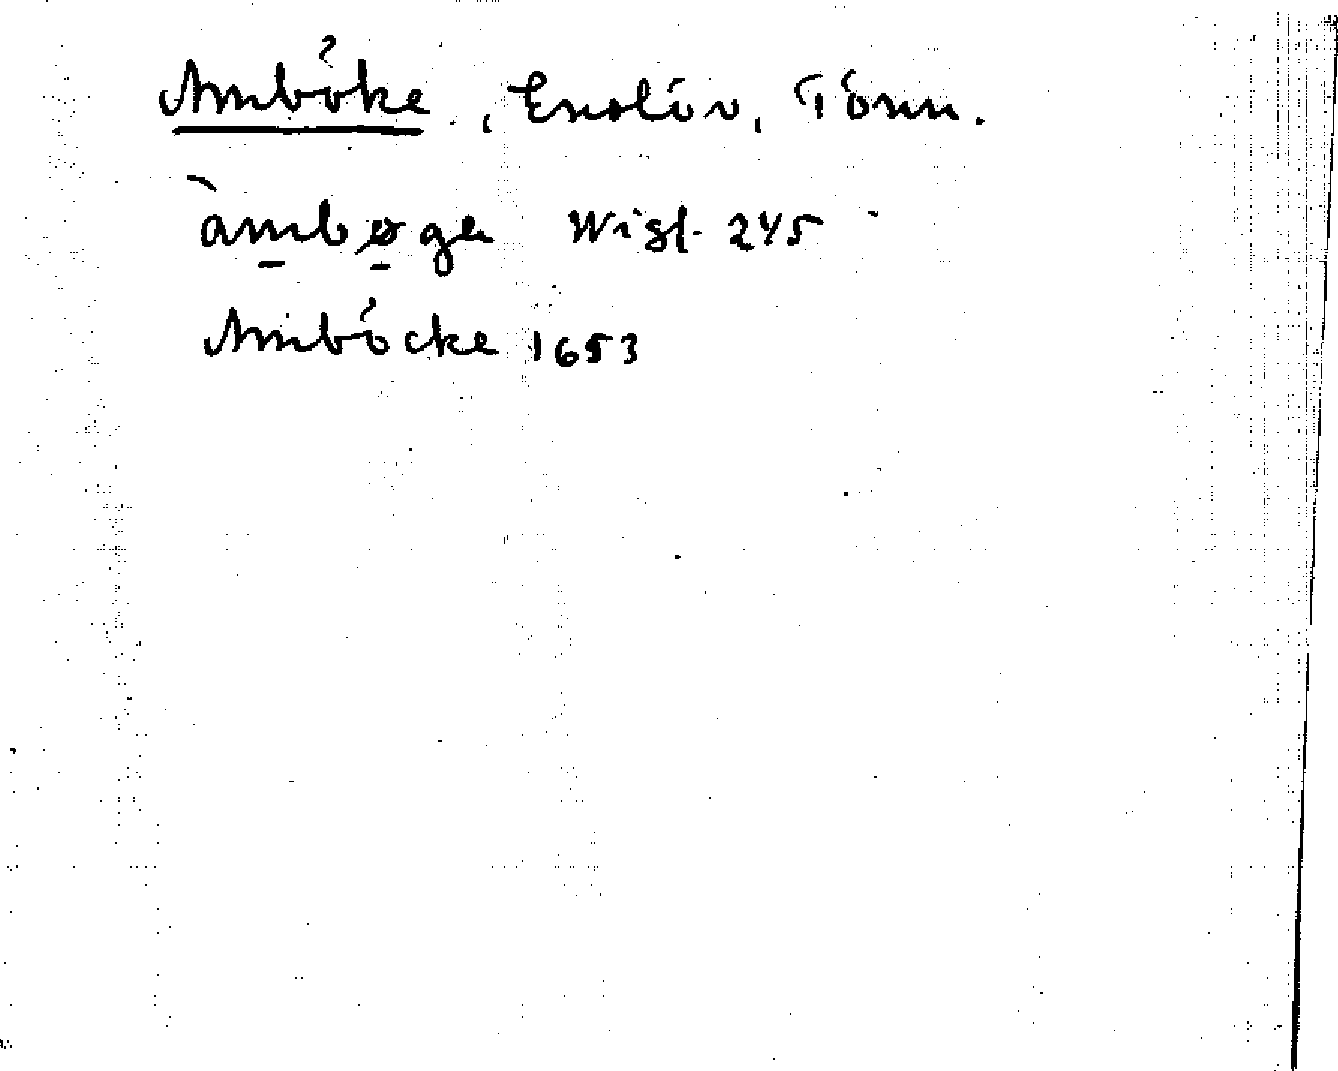 Amböke, Enslöv, Tönn.
àmbøgə Wigf. 245
Amböcke 1653